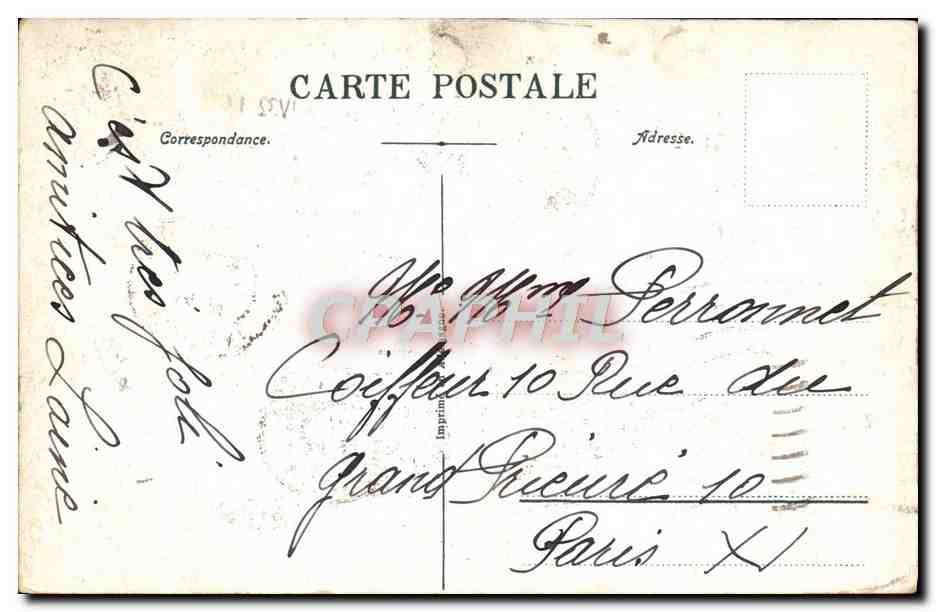 CARTE POSTALE
Correspondance.
Adresse.
C'est tres joli
amitiées Louis
Mr Mme Perronnet
Coiffeur 10 Rue du
grand Prieuré 10
Paris XI
CPAPHIL
Imprimé